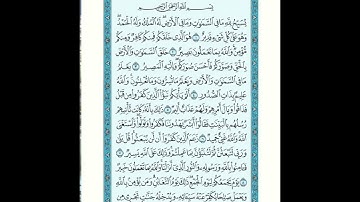 بِسْمِ اللَّهِ الرَّحْمَٰنِ الرَّحِيمِ
يُسَبِّحُ لِلَّهِ مَا فِي السَّمَاوَاتِ وَمَا فِي الْأَرْضِ لَهُ الْمُلْكُ وَلَهُ الْحَمْدُ
وَهُوَ عَلَىٰ كُلِّ شَيْءٍ قَدِيرٌ ۝ هُوَ الَّذِي خَلَقَكُمْ فَمِنكُمْ كَافِرٌ وَمِنكُم
مُّؤْمِنٌ وَاللَّهُ بِمَا تَعْمَلُونَ بَصِيرٌ ۝ خَلَقَ السَّمَاوَاتِ وَالْأَرْضَ
بِالْحَقِّ وَصَوَّرَكُمْ فَأَحْسَنَ صُوَرَكُمْ وَإِلَيْهِ الْمَصِيرُ ۝ يَعْلَمُ
مَا فِي السَّمَاوَاتِ وَالْأَرْضِ وَيَعْلَمُ مَا تُسِرُّونَ وَمَا تُعْلِنُونَ وَاللَّهُ
عَلِيمٌ بِذَاتِ الصُّدُورِ ۝ أَلَمْ يَأْتِكُمْ نَبَأُ الَّذِينَ كَفَرُوا مِن قَبْلُ
فَذَاقُوا وَبَالَ أَمْرِهِمْ وَلَهُمْ عَذَابٌ أَلِيمٌ ۝ ذَٰلِكَ بِأَنَّهُ كَانَت تَّأْتِيهِمْ
رُسُلُهُم بِالْبَيِّنَاتِ فَقَالُوا أَبَشَرٌ يَهْدُونَنَا فَكَفَرُوا وَتَوَلَّوا وَّاسْتَغْنَى
اللَّهُ وَاللَّهُ غَنِيٌّ حَمِيدٌ ۝ زَعَمَ الَّذِينَ كَفَرُوا أَن لَّن يُبْعَثُوا قُلْ بَلَىٰ
وَرَبِّي لَتُبْعَثُنَّ ثُمَّ لَتُنَبَّؤُنَّ بِمَا عَمِلْتُمْ وَذَٰلِكَ عَلَى اللَّهِ يَسِيرٌ ۝
فَآمِنُوا بِاللَّهِ وَرَسُولِهِ وَالنُّورِ الَّذِي أَنزَلْنَا وَاللَّهُ بِمَا تَعْمَلُونَ خَبِيرٌ
۝ يَوْمَ يَجْمَعُكُمْ لِيَوْمِ الْجَمْعِ ذَٰلِكَ يَوْمُ التَّغَابُنِ وَمَن يُؤْمِن بِاللَّهِ
وَيَعْمَلْ صَالِحًا يُكَفِّرْ عَنْهُ سَيِّئَاتِهِ وَيُدْخِلْهُ جَنَّاتٍ تَجْرِي مِن